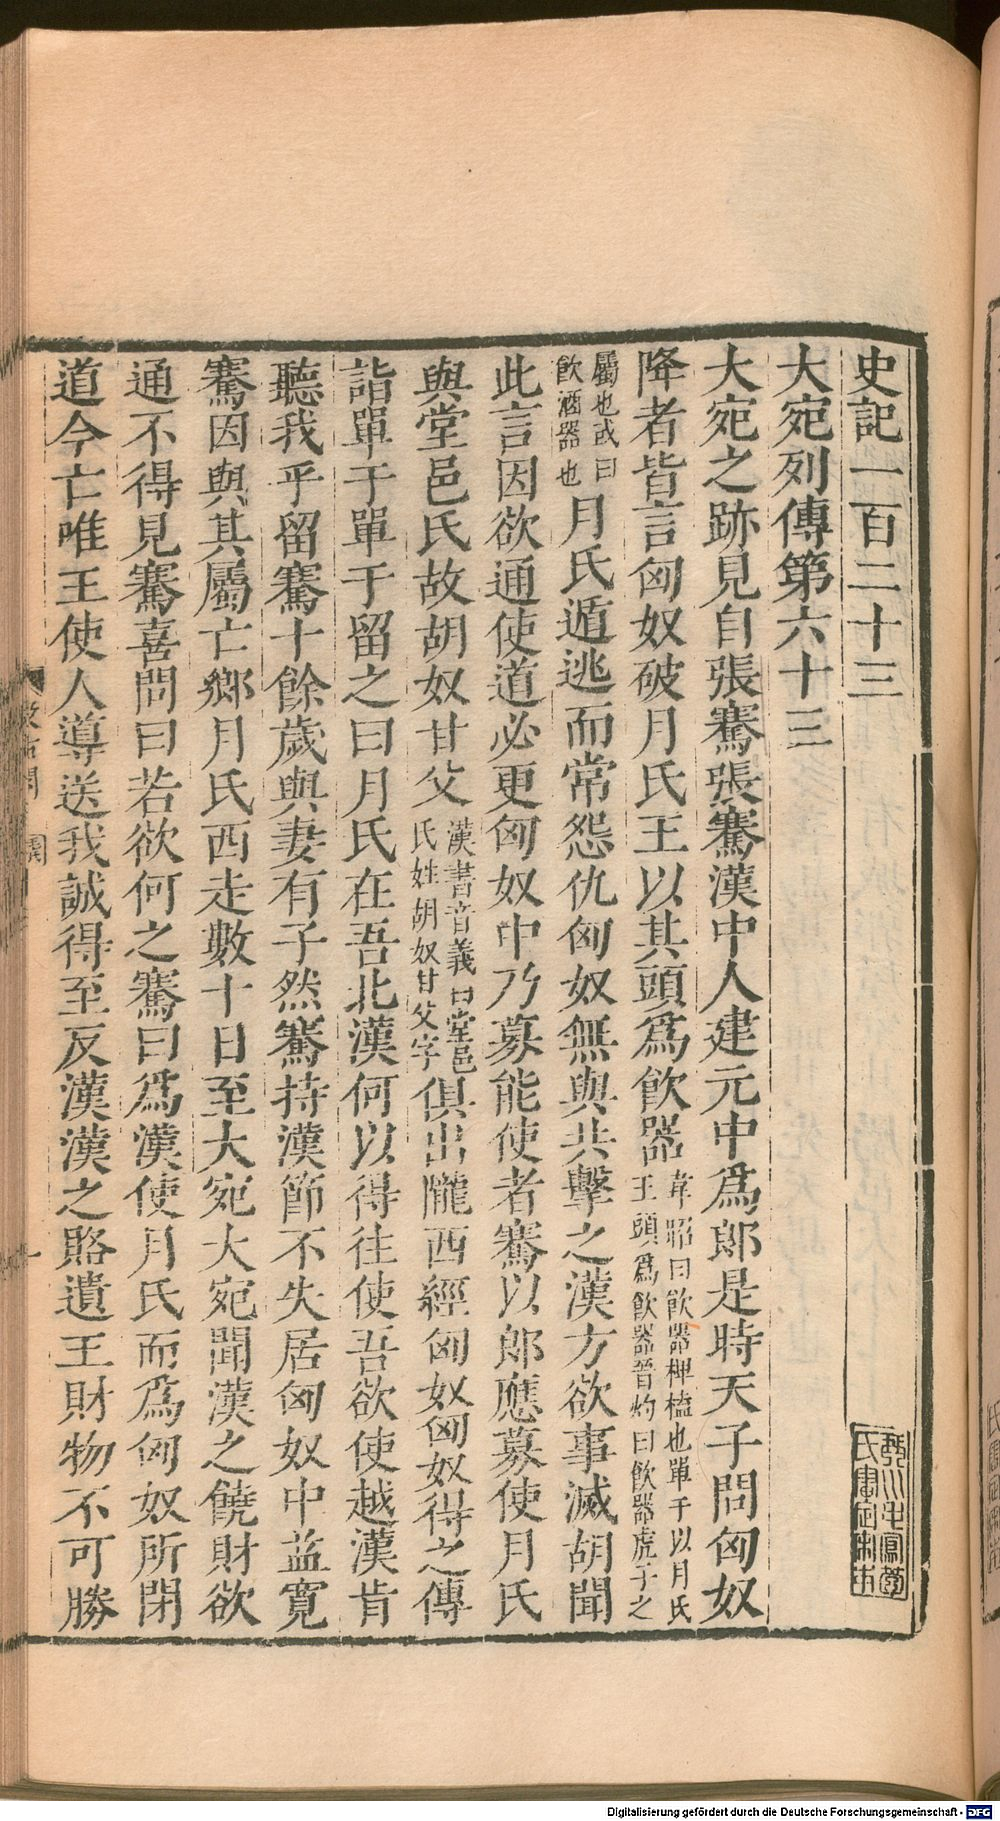 史記一百二十三
大宛列傳第六十三
大宛之跡見自張騫張騫漢中人建元中爲郎是時天子問匈奴
降者皆言匈奴破月氏王以其頭爲飲器韋昭曰飲器椑榼也單于以月氏王頭爲飲器晉灼曰飲器虎子之
屬也或曰飲酒器也月氏遁逃而常怨仇匈奴無與共擊之漢方欲事滅胡聞
此言因欲通使道必更匈奴中乃募能使者騫以郎應募使月氏
與堂邑氏故胡奴甘父漢書音義曰堂邑氏姓胡奴甘父字俱出隴西經匈奴匈奴得之傳
詣單于單于留之曰月氏在吾北漢何以得往使吾欲使越漢肯
聽我乎留騫十餘歲與妻有子然騫持漢節不失居匈奴中益寬
騫因與其屬亡鄉月氏西走數十日至大宛大宛聞漢之饒財欲
通不得見騫喜問曰若欲何之騫曰爲漢使月氏而爲匈奴所閉
道今亡唯王使人導送我誠得至反漢漢之賂遺王財物不可勝
Digitalisierung gefördert durch die Deutsche Forschungsgemeinschaft - DFG